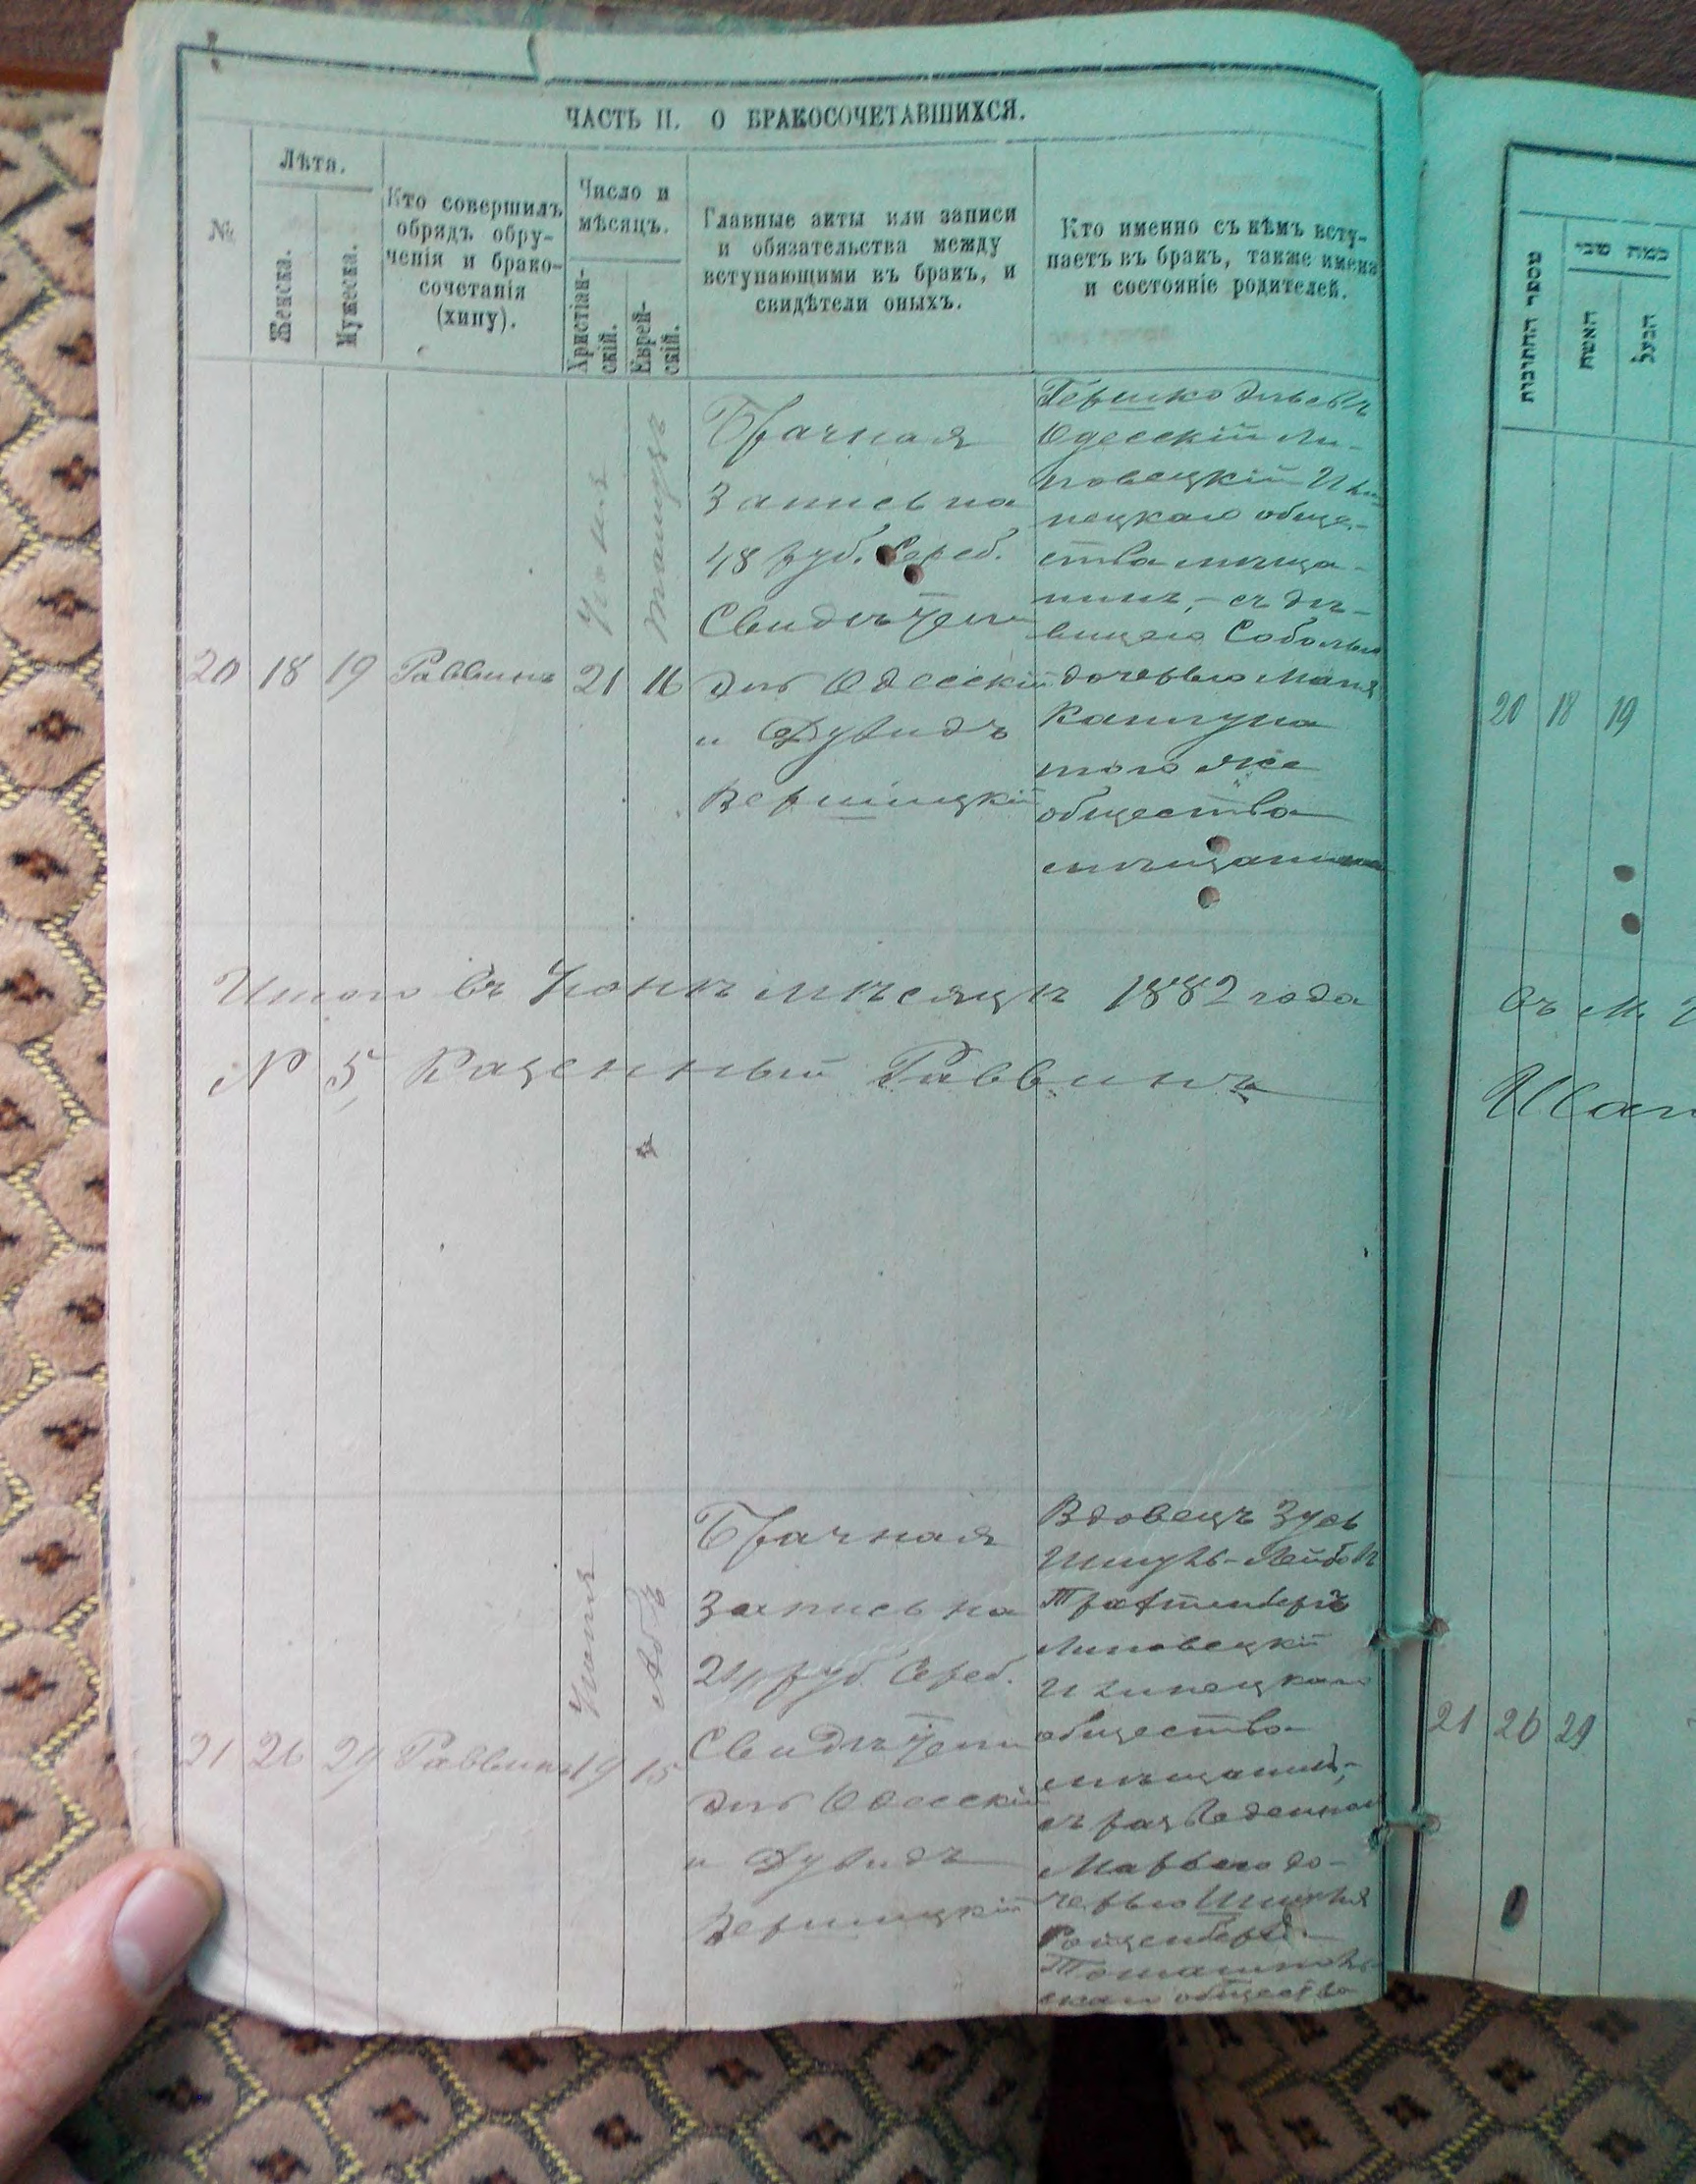 ЧАСТЬ II. О БРАКОСОЧЕТАВШИХСЯ.
№
Лѣта.
Женска.
Мужеска.
Кто совершилъ
обрядъ обру-
ченія и брако-
сочетанія
(хипу).
Число и
мѣсяцъ.
Христіан-
скій.
Еврей-
скій.
Главные акты или записи
и обязательства между
вступающими въ бракъ, и
свидѣтели оныхъ.
Кто именно съ кѣмъ всту-
паетъ въ бракъ, также имена
и состояніе родителей.
20
18
19
Раввинъ
Іюня
21
Тамуза
16
Брачная
Запись на
48 руб. Сереб.
Свидѣтели
Эль Одесскій
и Дувидъ
Вершицкій
Гершко Эльевъ
Одесскій Ли-
повецкій Иль-
нецкаго обще-
ства мѣща-
нинъ, - съ дѣ-
вицею Соболью
дочерью
Каплуна
того же
общества
мѣщанина
Итого въ Іюнѣ мѣсяцѣ 1882 года
№ 5 Казенный Раввинъ
21
26
29
Раввинъ
Іюля
19
Абъ
15
Брачная
Запись на
24 руб. Сереб.
Свидѣтели
Эль Одесскій
и Дувидъ
Вершицкій
Вдовецъ Зусь
Шмуль-Лейбовъ
Трахтенбергъ
Липовецкій
Илинецкаго
общества
мѣщанинъ,
съ разведенной
до-
черью Шмуля
Ройзенберга
общества
מספר החתונות
שני
האשה
הבעל
20 18 19
21 26 29